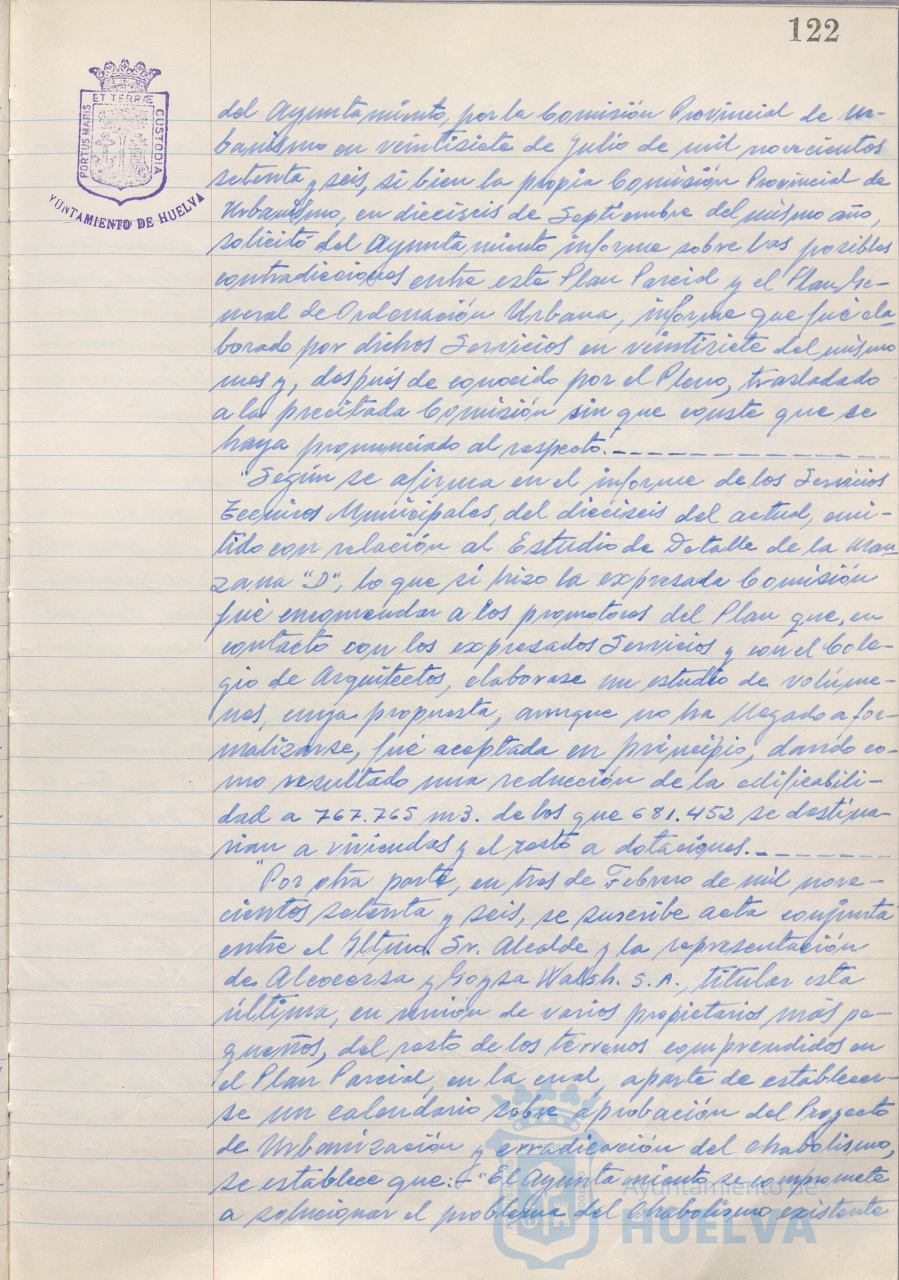 122
ET TERRÆ
PORTUS MARIS
CUSTODIA
YUNTAMIENTO DE HUELVA
del Ayuntamiento, por la Comisión Provincial de Ur-
banismo en veintisiete de Julio de mil novecientos
setenta y seis, si bien la propia Comisión Provincial de
Urbanismo, en dieciseis de Septiembre del mismo año,
solicitó del Ayuntamiento informe sobre las posibles
contradicciones entre este Plan Parcial y el Plan Ge-
neral de Ordenación Urbana, informe que fué ela-
borado por dichos Servicios en veintisiete del mismo
mes y, después de conocido por el Pleno, trasladado
a la precitada Comisión sin que conste que se
haya pronunciado al respecto.
"Según se afirma en el informe de los Servicios
Tecnicos Municipales, del dieciseis del actual, emi-
tido con relación al Estudio de Detalle de la Man-
zana "D", lo que si hizo la expresada Comisión
fué encomendar a los promotores del Plan que, en
contacto con los expresados Servicios y con el Cole-
gio de Arquitectos, elaborase un estudio de volúme-
nes, cuya propuesta, aunque no ha llegado a for-
malizarse, fué aceptada en principio, dando co-
mo resultado una reducción de la edificabili-
dad a 767.765 m3. de los que 681.452 se destina-
rian a viviendas y el resto a dotaciones.
"Por otra parte, en tres de Febrero de mil nove-
cientos setenta y seis, se suscribe acta conjunta
entre el Iltmo. Sr. Alcalde y la representación
de Alcocersa y Goysa Walsh. S.A., titular esta
última, en unión de varios propietarios más pe-
queños, del resto de los terrenos comprendidos en
el Plan Parcial, en la cual, aparte de establecer-
se un calendario sobre aprobación del Proyecto
de Urbanización y erradicación del chabolismo,
se establece que: "El Ayuntamiento se compromete
a solucionar el problema del Chabolismo existente
Ayuntamiento de
HUELVA